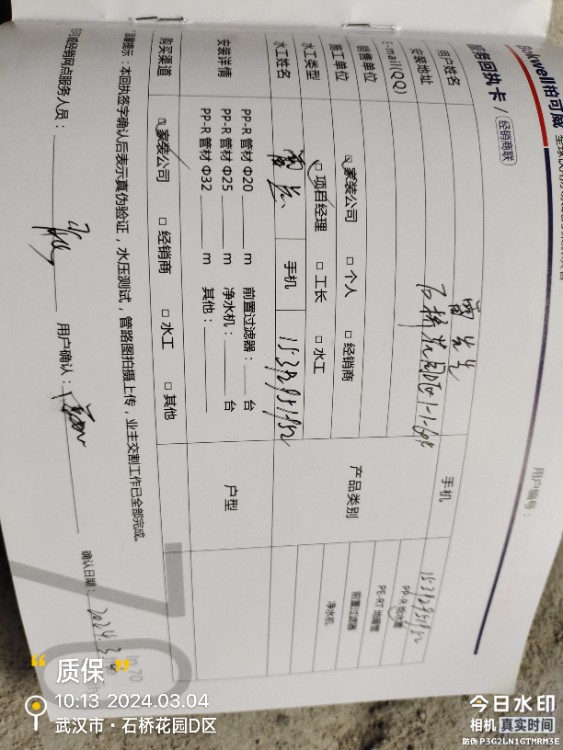 Rokwell柏可威
服务回执卡 / 经销商联
用户编号：
用户姓名 雷先生 手机 15392951952
安装地址 石桥花园D区1-1-602
E-mail(QQ)
产品类别 PP-R给水管
PE-RT地暖管
前置过滤器
净水机
销售单位 家装公司 □ 个人 □ 经销商
施工单位 □ 项目经理 □ 工长 □ 水工
水工类型
水工姓名 手机 15392951952
安装详情 PP-R 管材 Φ20 ____ m 前置过滤器：____ 台
PP-R 管材 Φ25 ____ m 净水机：____ 台
PP-R 管材 Φ32 ____ m 其他：____
户型
购买渠道 家装公司 □ 经销商 □ 水工 □ 其他
温馨提示：本回执签字确认后表示真伪验证，水压测试，管路图拍摄上传，业主交割工作已全部完成。
经销网点服务人员： 用户确认： 确认日期：2024.3.
质保
10:13 2024.03.04
武汉市·石桥花园D区
今日水印
相机 真实时间
防伪 P3G2LN1GTMRM3E